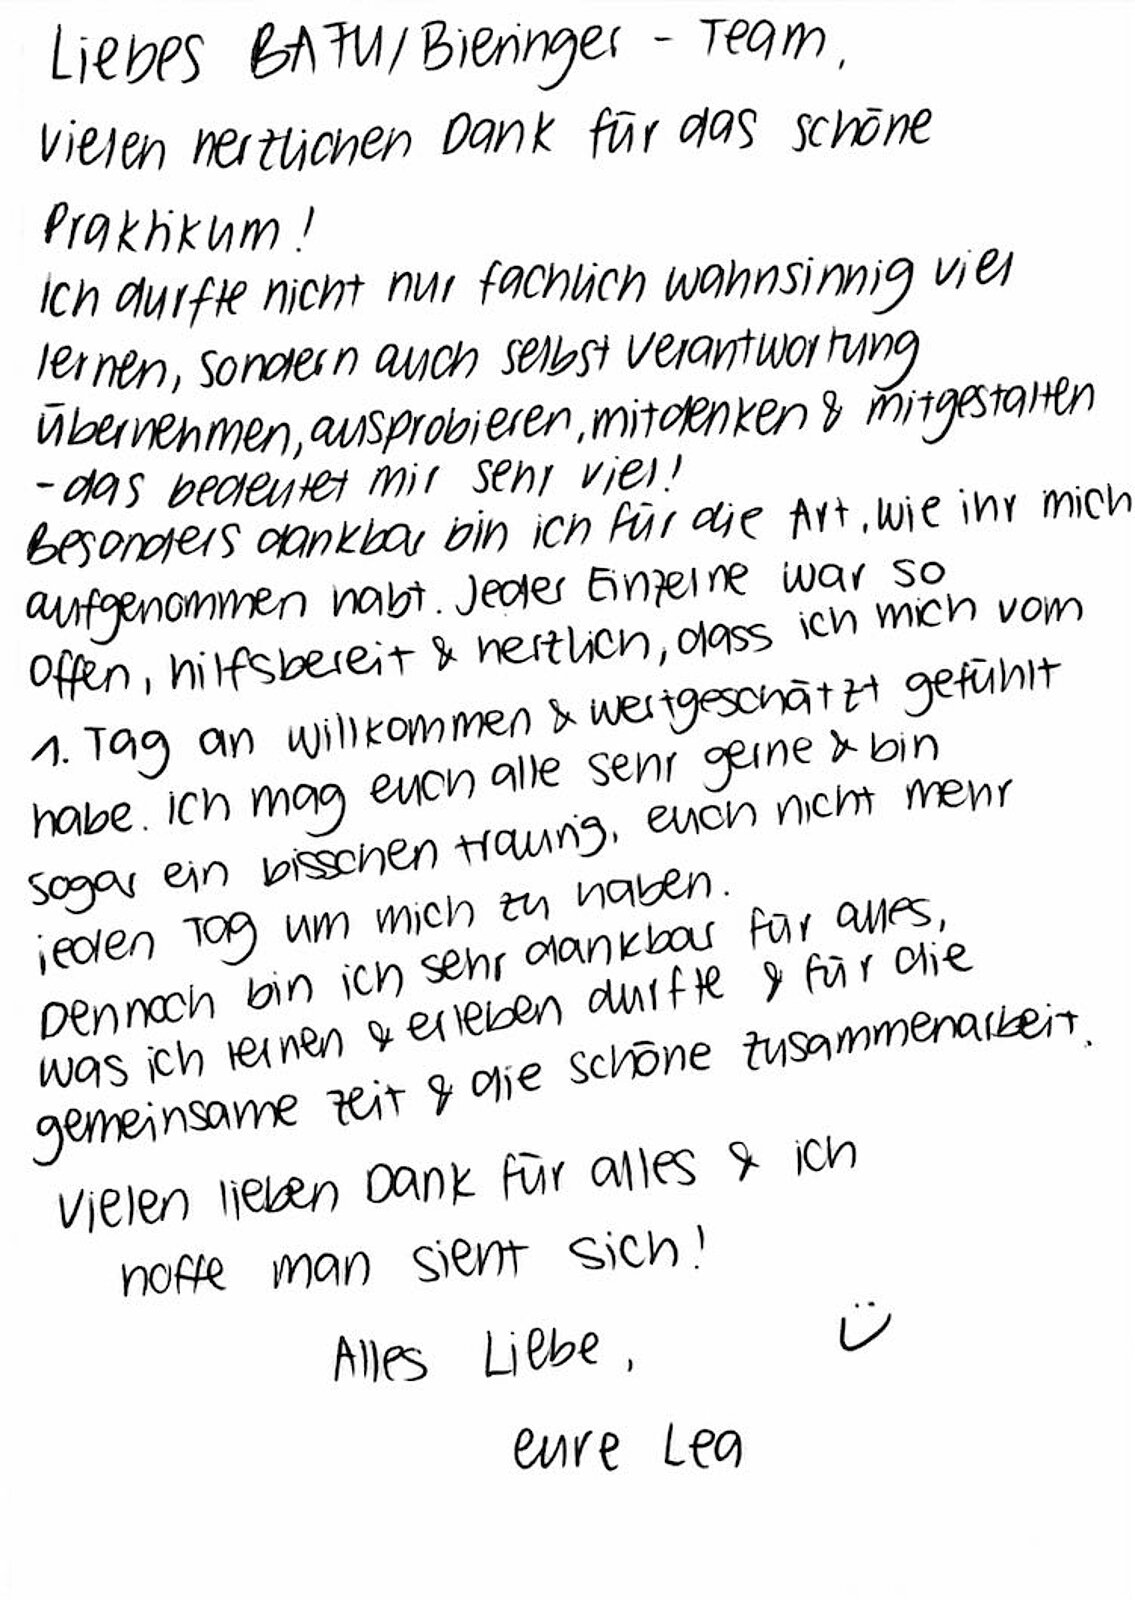 Liebes BAFU/Bieringer - Team,
vielen herzlichen Dank für das schöne
Praktikum!
Ich durfte nicht nur fachlich wahnsinnig viel
lernen, sondern auch selbst Verantwortung
übernehmen, ausprobieren, mitdenken & mitgestalten
- das bedeutet mir sehr viel!
Besonders dankbar bin ich für die Art, wie ihr mich
aufgenommen habt. Jeder Einzelne war so
offen, hilfsbereit & herzlich, dass ich mich vom
1. Tag an willkommen & wertgeschätzt gefühlt
habe. Ich mag euch alle sehr gerne & bin
sogar ein bisschen traurig, euch nicht mehr
jeden Tag um mich zu haben.
Dennoch bin ich sehr dankbar für alles,
was ich lernen & erleben durfte & für die
gemeinsame Zeit & die schöne Zusammenarbeit.
Vielen lieben Dank für alles & ich
hoffe man sieht sich!
Alles Liebe,
eure Lea